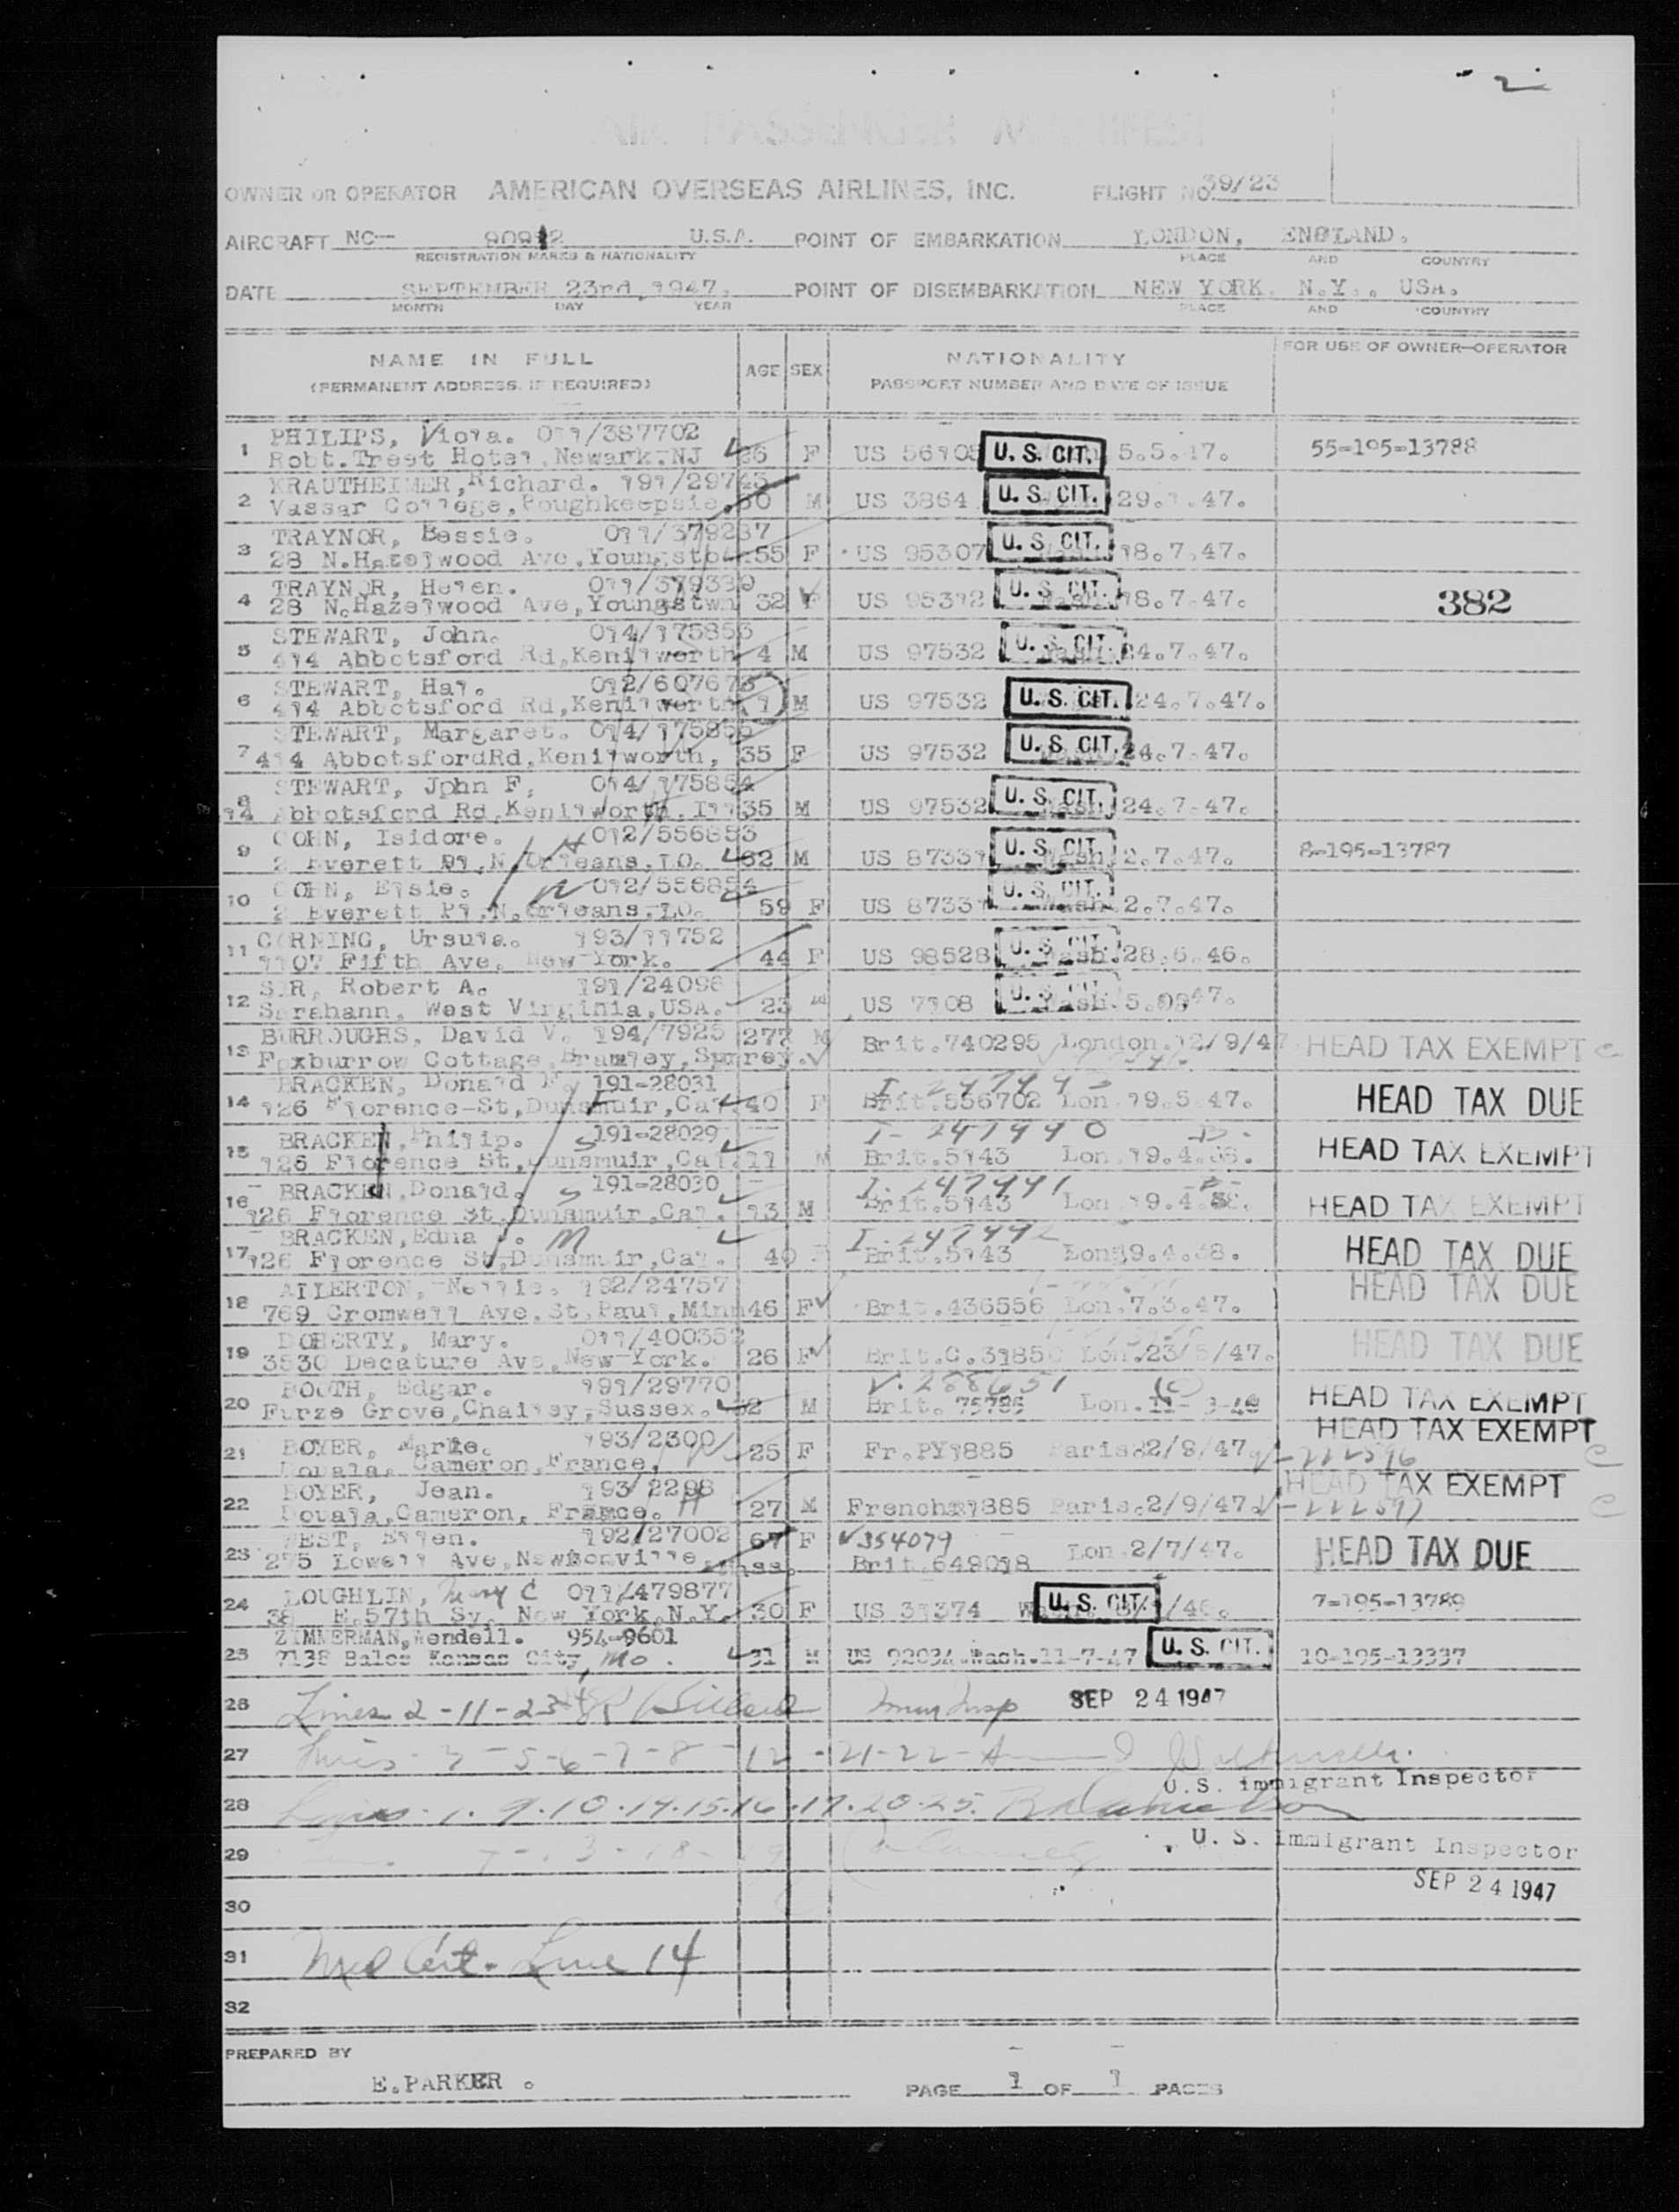 AIR PASSENGER MANIFEST
OWNER OR OPERATOR AMERICAN OVERSEAS AIRLINES, INC. FLIGHT NO. 39/23
AIRCRAFT NC— 90912 U.S.A. POINT OF EMBARKATION LONDON, ENGLAND.
REGISTRATION MARKS & NATIONALITY PLACE AND COUNTRY
DATE SEPTEMBER 23rd, 1947. POINT OF DISEMBARKATION NEW YORK. N.Y., USA.
MONTH DAY YEAR PLACE AND COUNTRY
NAME IN FULL AGE SEX NATIONALITY FOR USE OF OWNER—OPERATOR
(PERMANENT ADDRESS, IF REQUIRED) PASSPORT NUMBER AND DATE OF ISSUE
PHILIPS, Viola. 011/387702
1 Robt.Treet Hotel,Newark.NJ F US U.S. CIT. 55-195-13788
KRAUTHEIMER, Richard. 191/29745
2 Vassar College,Poughkeepsie. 50 M US 3864 U.S. CIT. 29.1.47.
TRAYNOR, Bessie. 011/379237
3 28 N.Hazelwood Ave,Youngstow 55 F US 95307 U.S. CIT. 18.7.47.
TRAYNOR, Helen. 011/379330
4 28 N.Hazelwood Ave,Youngstwn 32 F US 95312 U.S. CIT. 18.7.47. 382
STEWART, John. 014/175853
5 414 Abbotsford Rd,Kenilworth 4 M US 97532 U.S. CIT. 24.7.47.
STEWART, Hal. 012/607673
6 414 Abbotsford Rd,Kenilworth, 1 M US 97532 U.S. CIT. 24.7.47.
STEWART, Margaret. 014/175855
7 414 AbbotsfordRd,Kenilworth, 35 F US 97532 U.S. CIT. 24.7.47.
STEWART, John F, 014/175854
8 14 Abbotsford Rd,Kenilworth, Ill 35 M US 97532 U.S. CIT. 24.7.47.
COHN, Isidore. 012/556853
9 2 Everett Pl,N.Orleans.LO. 62 M US 87331 U.S. CIT. 2.7.47. 8-195-13787
COHN, Elsie. 012/556854
10 2 Everett Pl,N.Orleans.LO. 59 F US 87331 U.S. CIT. 2.7.47.
CORNING, Ursula. 193/11752
11 1107 Fifth Ave. New York. 44 F US 98528 U.S. CIT. 28.6.46.
Robert A. 191/24098
12 Sarahann, West Virginia,USA. 23 US 7108 U.S. CIT.
BURROUGHS, David V. 194/7925
13 Foxburrow Cottage,Bramley,Surrey. 27 M Brit.740295 London.12/9/47 HEAD TAX EXEMPT
BRACKEN, Donald F. 191-28031
14 126 Florence-St,Dunsmuir,Cal. 40 F Brit.556702 Lon 19.5.47. HEAD TAX DUE
BRACKEN, Philip. 191-28029 I- 247440
15 126 Florence St,Dunsmuir,Cal. 11 M Brit.5143 Lon.19.4.38. HEAD TAX EXEMPT
BRACKEN, Donald. 191-28030 I- 247441
16 126 Florence St,Dunsmuir,Cal. 13 M Brit.5143 Lon.19.4.38. HEAD TAX EXEMPT
BRACKEN, Edna J. M I- 247442
17 126 Florence St,Dunsmuir,Cal. 40 Brit.5143 Lon.19.4.38. HEAD TAX DUE
ALLERTON, Nellie. 192/24757 HEAD TAX DUE
18 769 Cromwell Ave,St.Paul,Minn 46 F Brit.436556 Lon.7.3.47.
DOHERTY, Mary. 011/400352
19 3530 Decature Ave,New York. 26 F Brit.C.31850 Lon.23/5/47. HEAD TAX DUE
BOOTH, Edgar. 191/29770 V. 288651
20 Furze Grove,Chailey,Sussex. M Brit. 75785 Lon. HEAD TAX EXEMPT
BOYER, Marie. 193/2300 HEAD TAX EXEMPT
21 Douala, Cameron,France, 25 F Fr.PY1885 Paris 2/9/47. V-222596
BOYER, Jean. 193/2298 HEAD TAX EXEMPT
22 Douala,Cameron, France. 27 M French 1885 Paris.2/9/47. V-222597
WEST, Ellen. 192/27002 67 F V354079
23 275 Lowell Ave,Newtonville,Mass. Brit.649018 Lon 2/7/47. HEAD TAX DUE
LOUGHLIN, Mary C 011/479877
24 38 E.57th Sy, New York.N.Y. 30 F US 31374 U.S. CIT. 7-195-13789
ZIMMERMAN,Wendell. 954-9601
25 7138 Bales Kansas City, Mo. 31 M US 92034.Wash.11-7-47 U.S. CIT. 10-195-13337
26 Lines 2-11-23 Imm Insp SEP 24 1947
27 Lines 5-6-7-8-12-21-22-
U.S. immigrant Inspector
28 Lines 1.9.10.14.15.16.17.20.25.
29 U. S. Immigrant Inspector
SEP 24 1947
30
31 Med Cert. Line 14
32
PREPARED BY
E.PARKER . PAGE 1 OF 1 PAGES